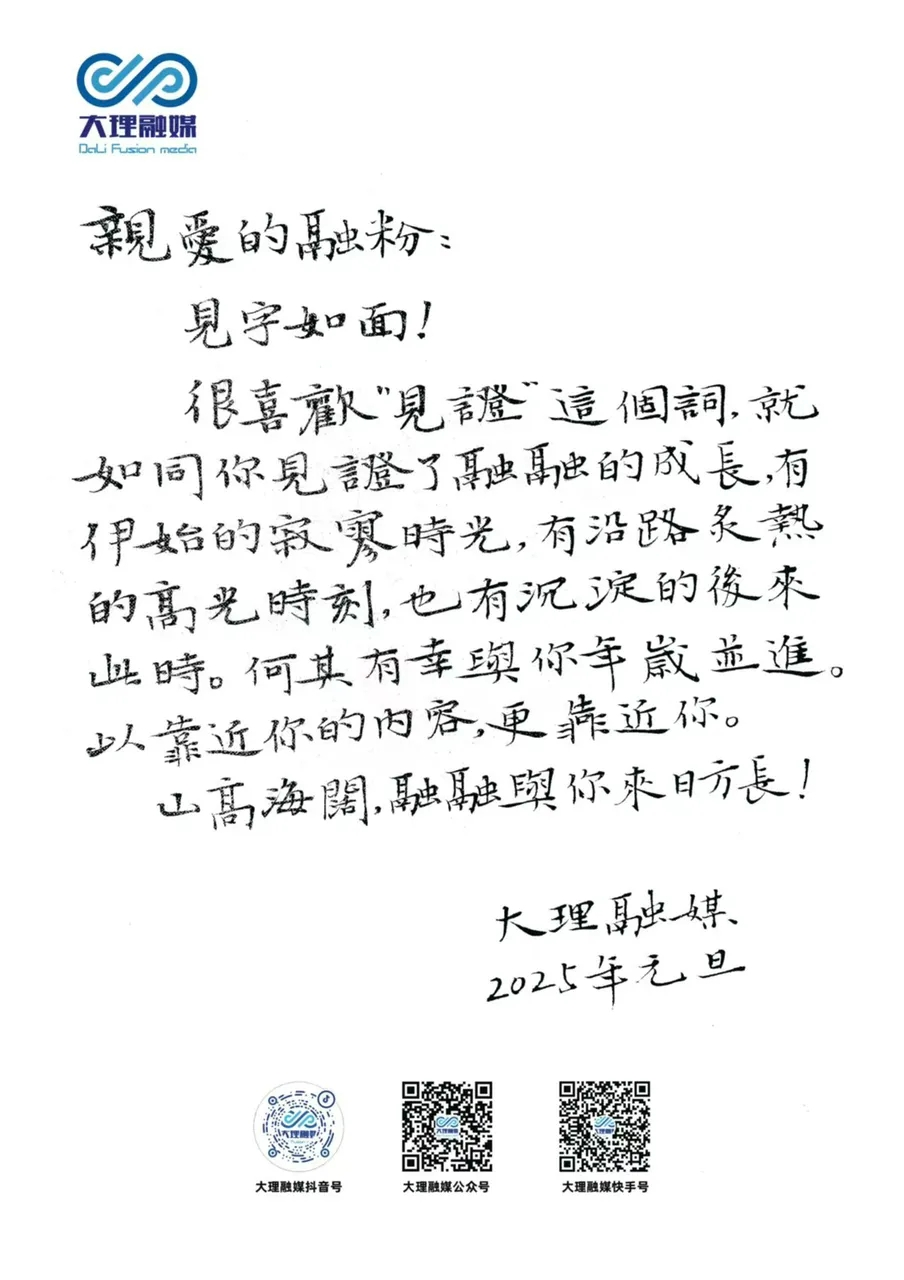 大理融媒
DaLi Fusion media
親愛的融粉：
見字如面！
很喜歡“見證”這個詞，就
如同你見證了融融的成長，有
伊始的寂寥時光，有沿路炙熱
的高光時刻，也有沉淀的後來
此時。何其有幸與你年歲並進。
以靠近你的内容，更靠近你。
山高海闊，融融與你來日方長！
大理融媒
2025年元旦
大理融媒抖音号
大理融媒公众号
大理融媒快手号